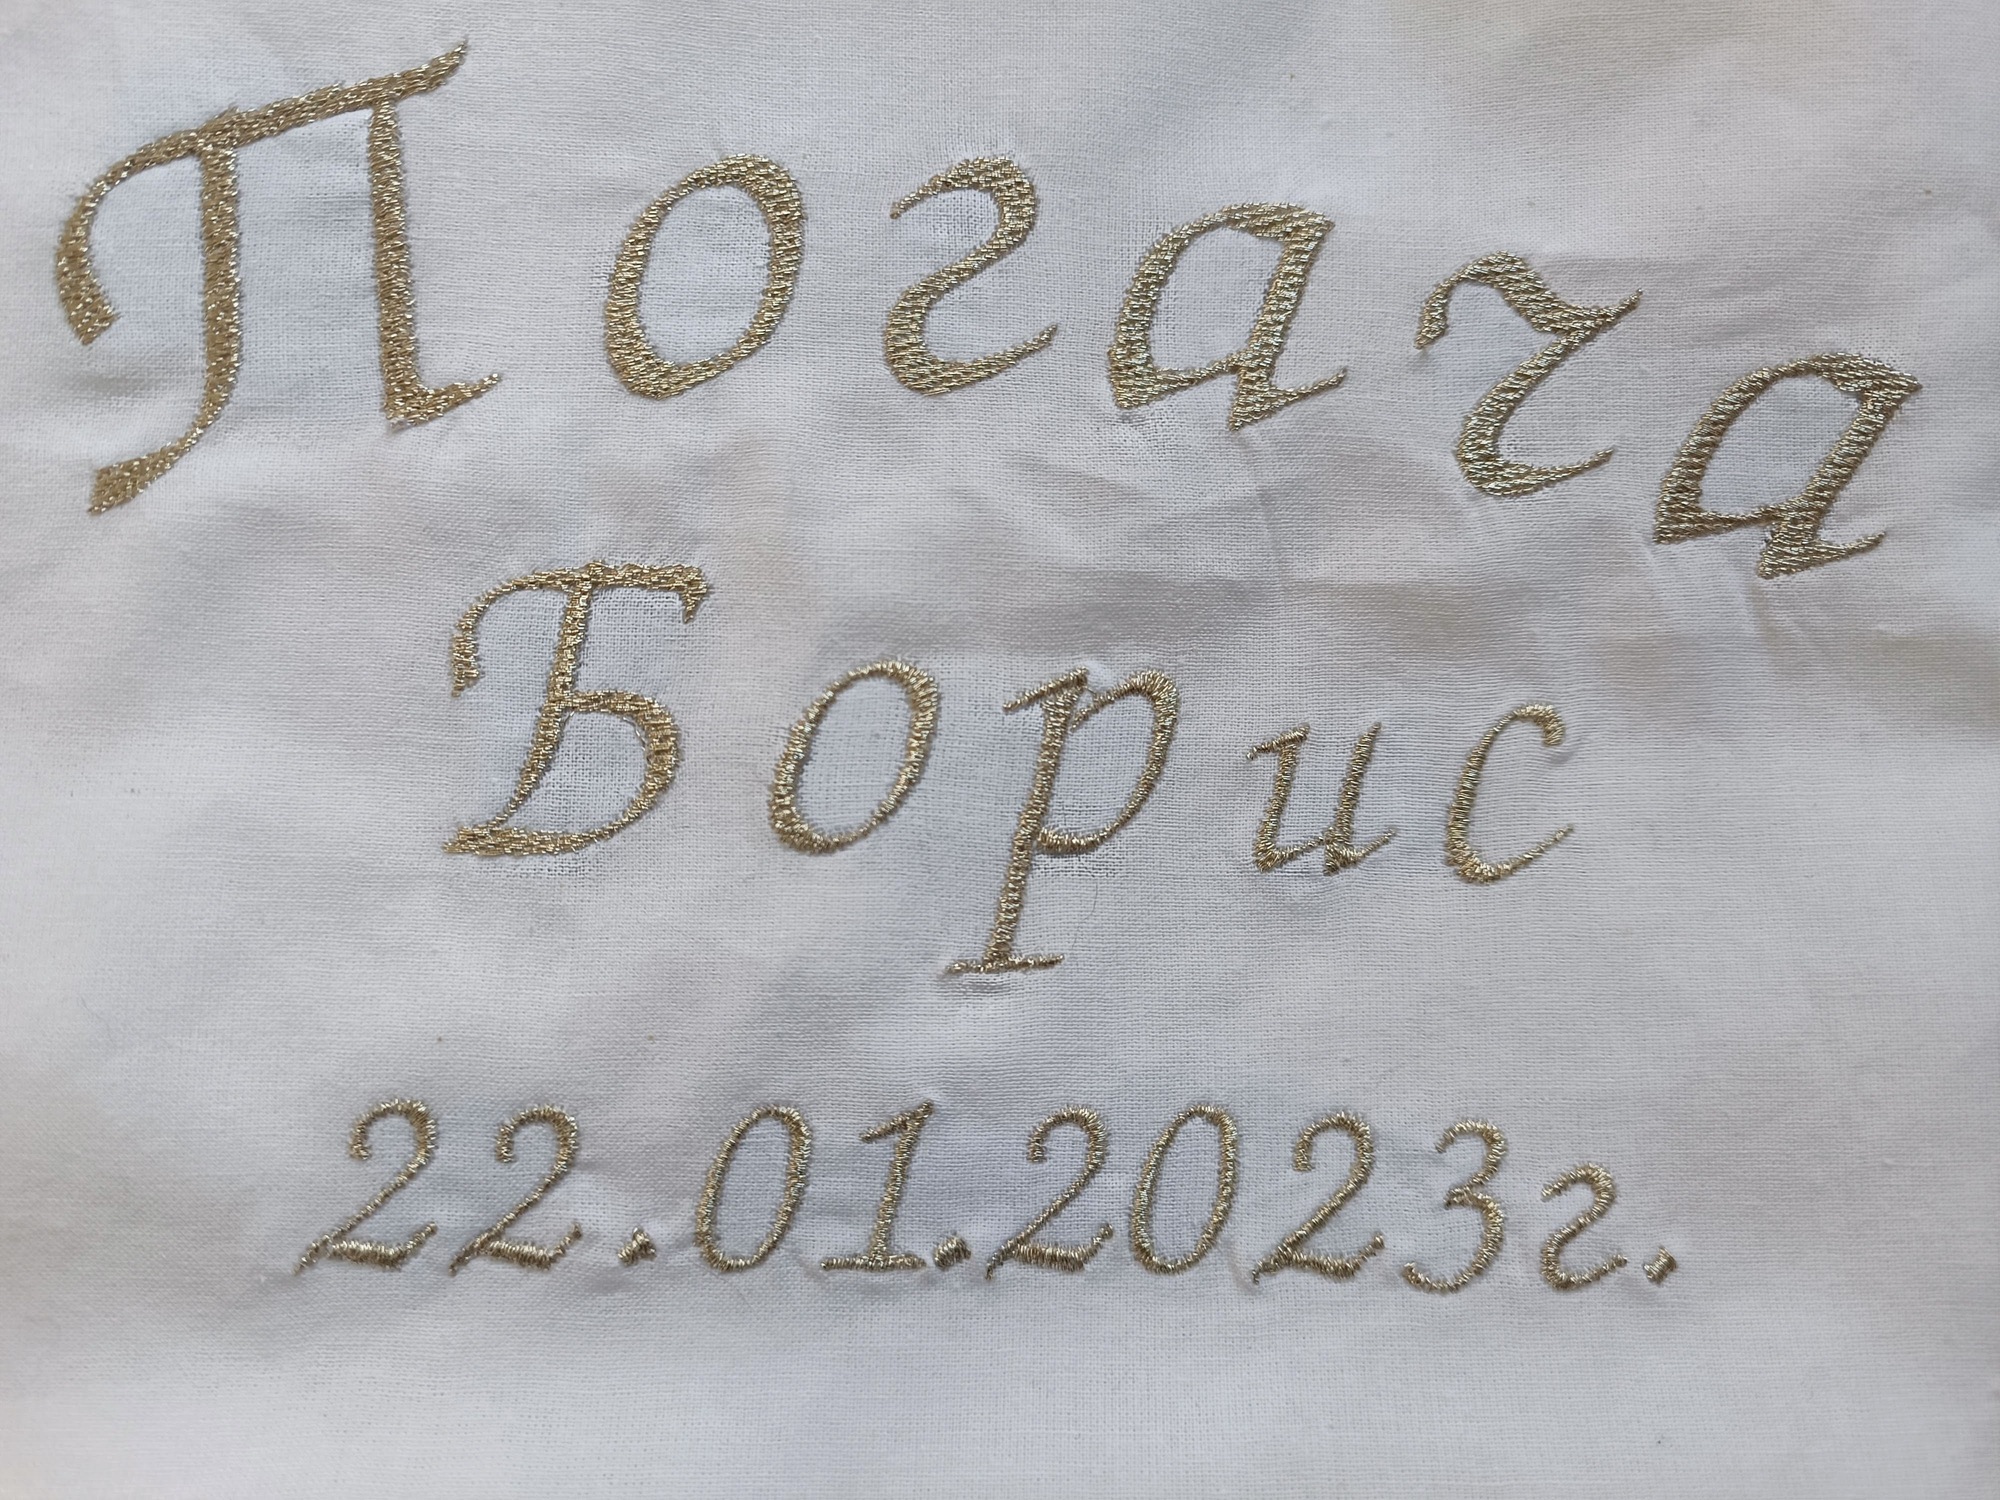 Погача
Борис
22.01.2023г.